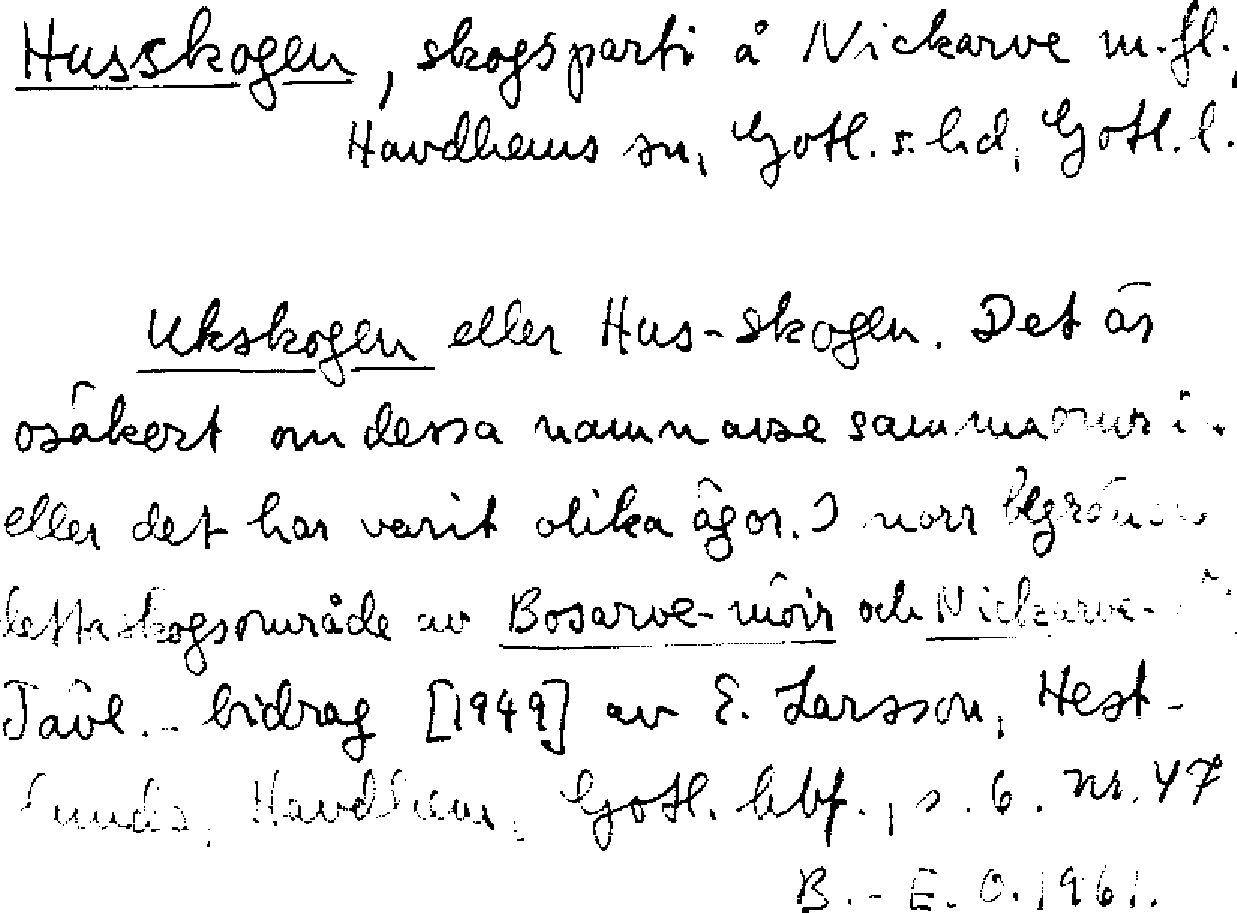 Husskogen, skogsparti å Nickarve m.fl.,
Havdhems sn, Gotl. s. hd, Gotl. l.
Ukskogen eller Hus-skogen. Det är
osäkert om dessa namn avse samma område
eller det har varit olika ägor. I norr begränsas
detta skogsområde av Bosarve-môir och Nickarve-
Tävl.-bidrag [1949] av E. Larsson, Hest-
Havdhem, Gotl. hbf., s. 6. nr. 47
B.-E. O. 1961.